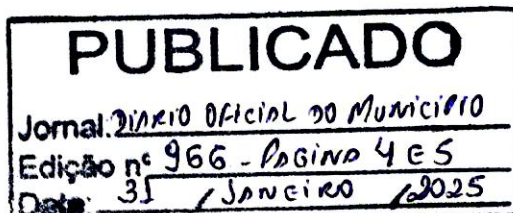 PUBLICADO
Jornal: DIÁRIO OFICIAL DO MUNICÍPIO
Edição nº 966 - PÁGINA 4 E 5
Data: 31 / JANEIRO / 2025